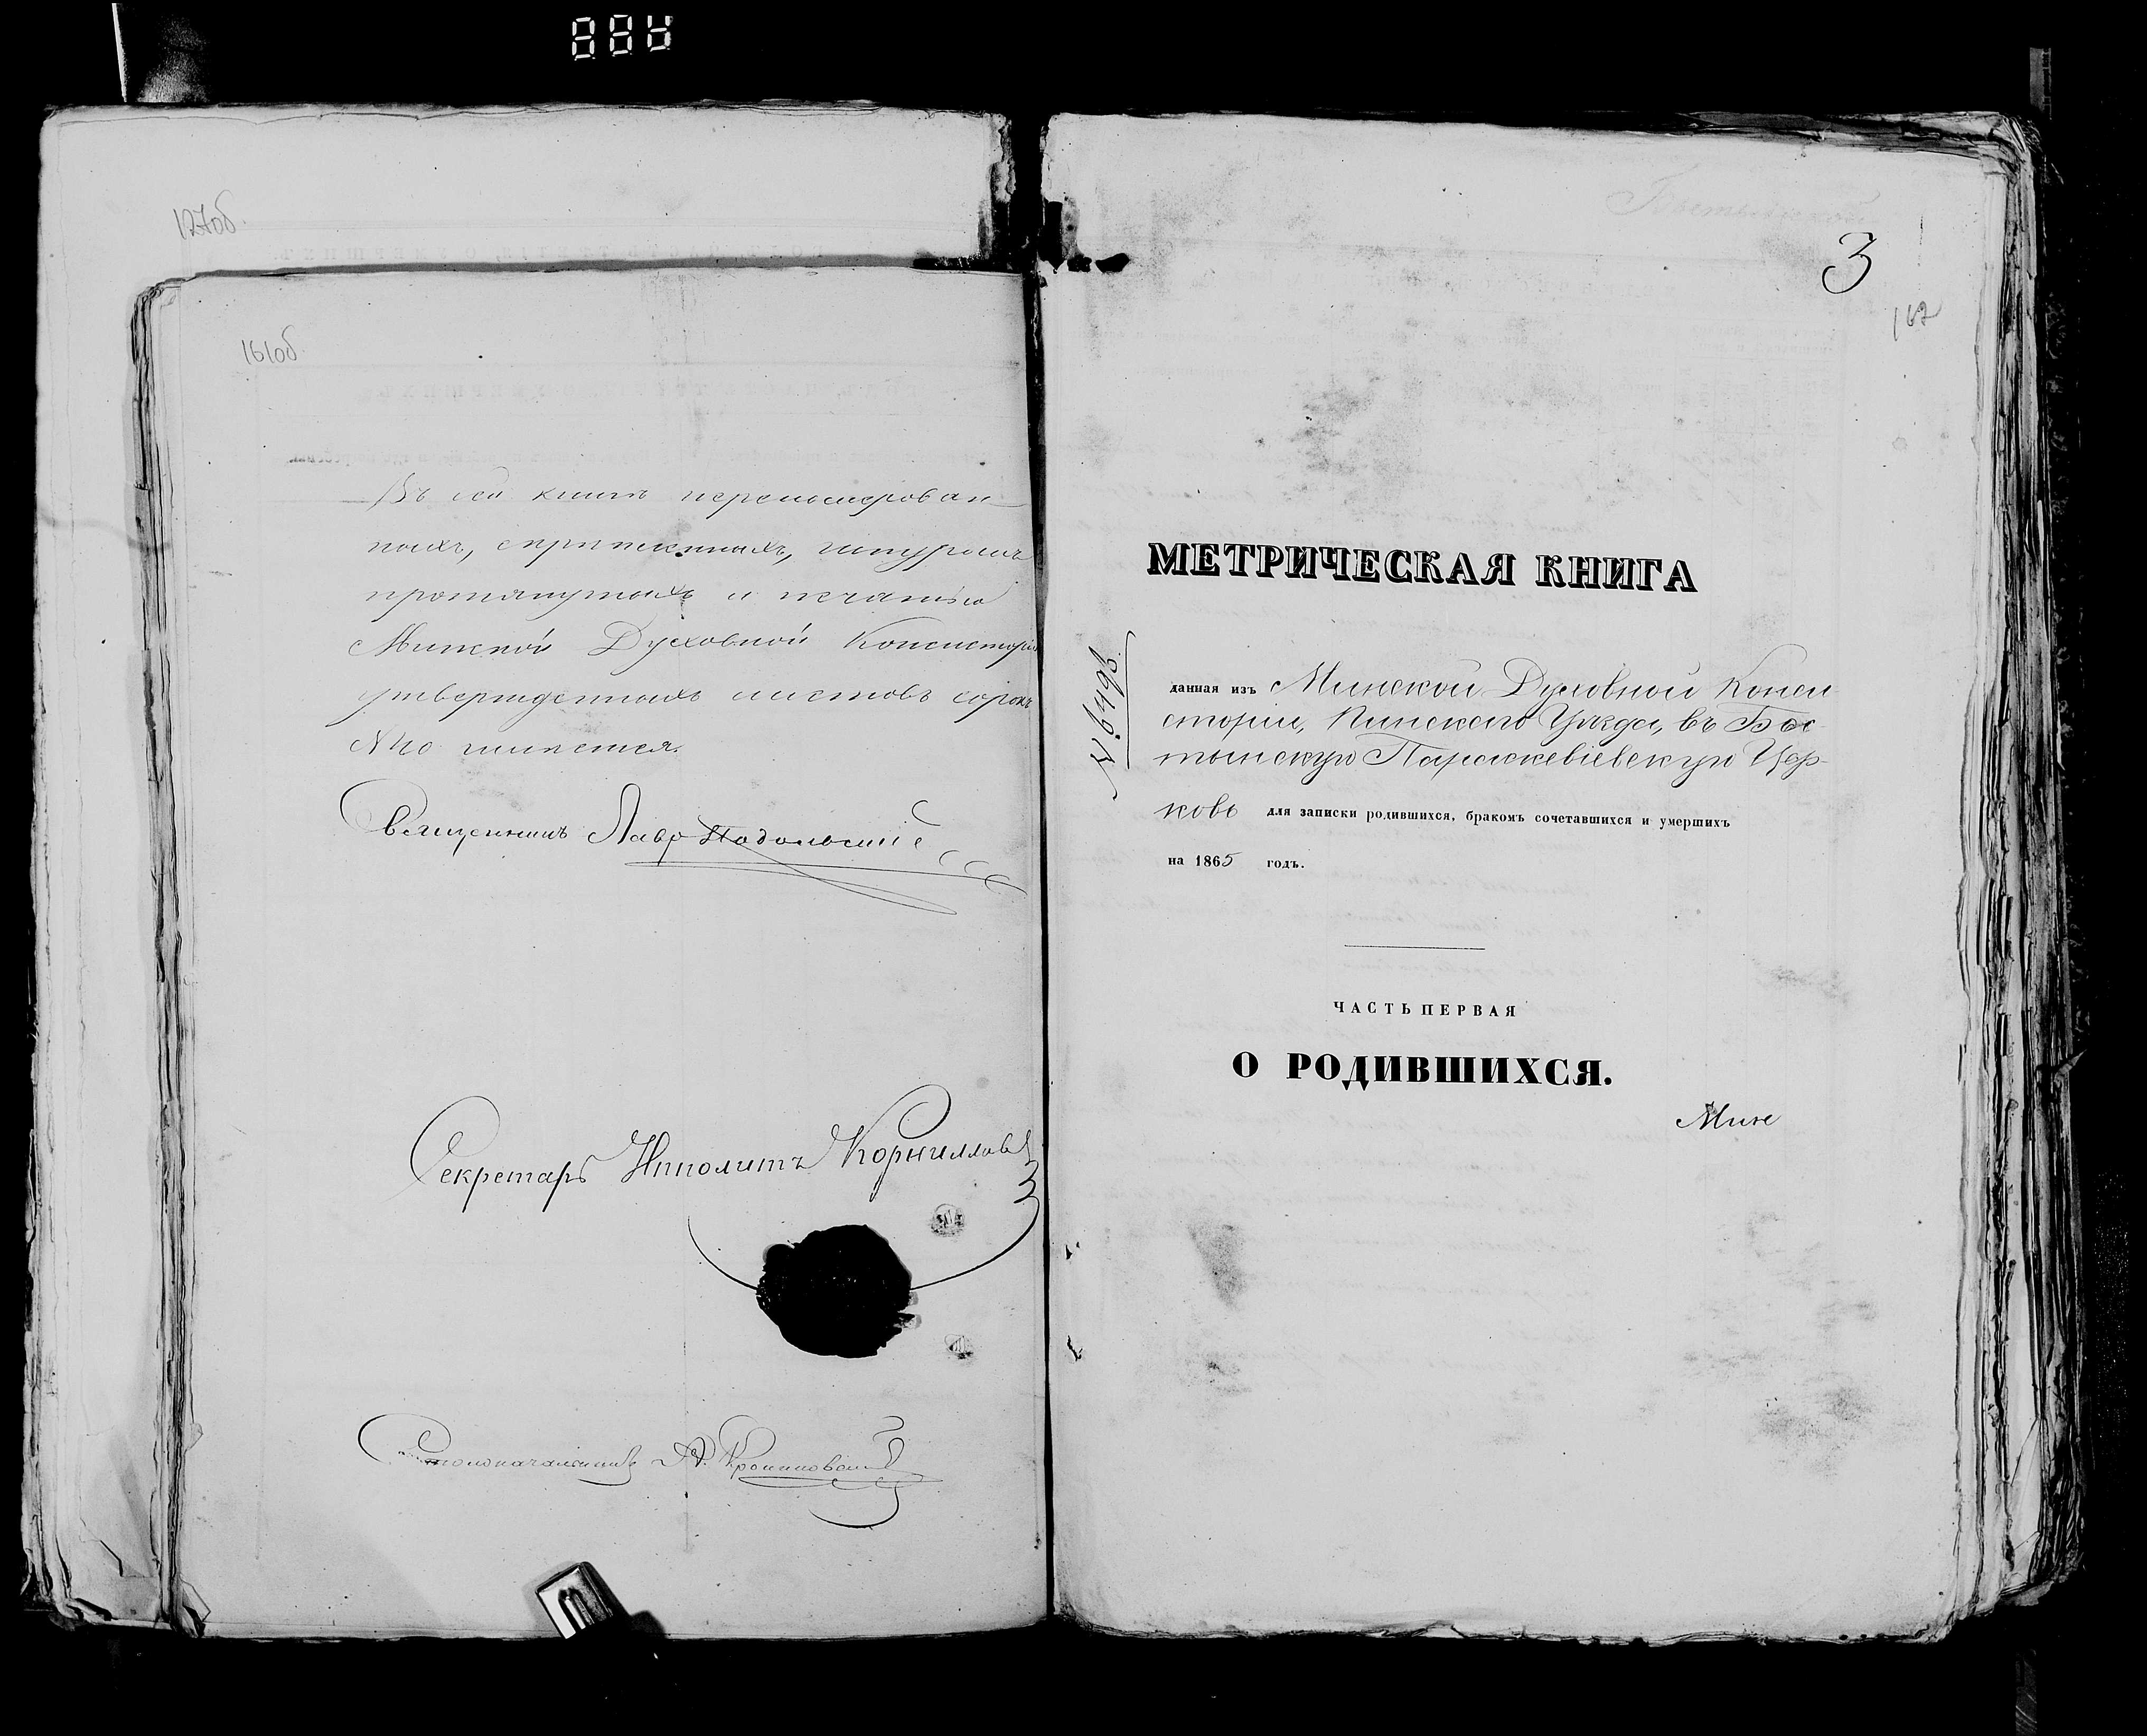 127об
161об
Въ сей книгѣ перенумерован
ныхъ, скрѣпленныхъ, шнуромъ
протянутыхъ и печатью
Минской Духовной Консисторіи
утвержденныхъ листовъ сорокъ
числится.
Священникъ Лавр Подольскій
Секретарь Ипполитъ Корниллов
Столоначальникъ
3
162
МЕТРИЧЕСКАЯ КНИГА
данная изъ Минской Духовной Конси-
сторіи, Пинскаго Уѣзда, въ Бос-
тынскую Параскевіевскую Цер-
ковь для записки родившихся, бракомъ сочетавшихся и умершихъ
на 1865 годъ.
ЧАСТЬ ПЕРВАЯ
О РОДИВШИХСЯ.
Мин